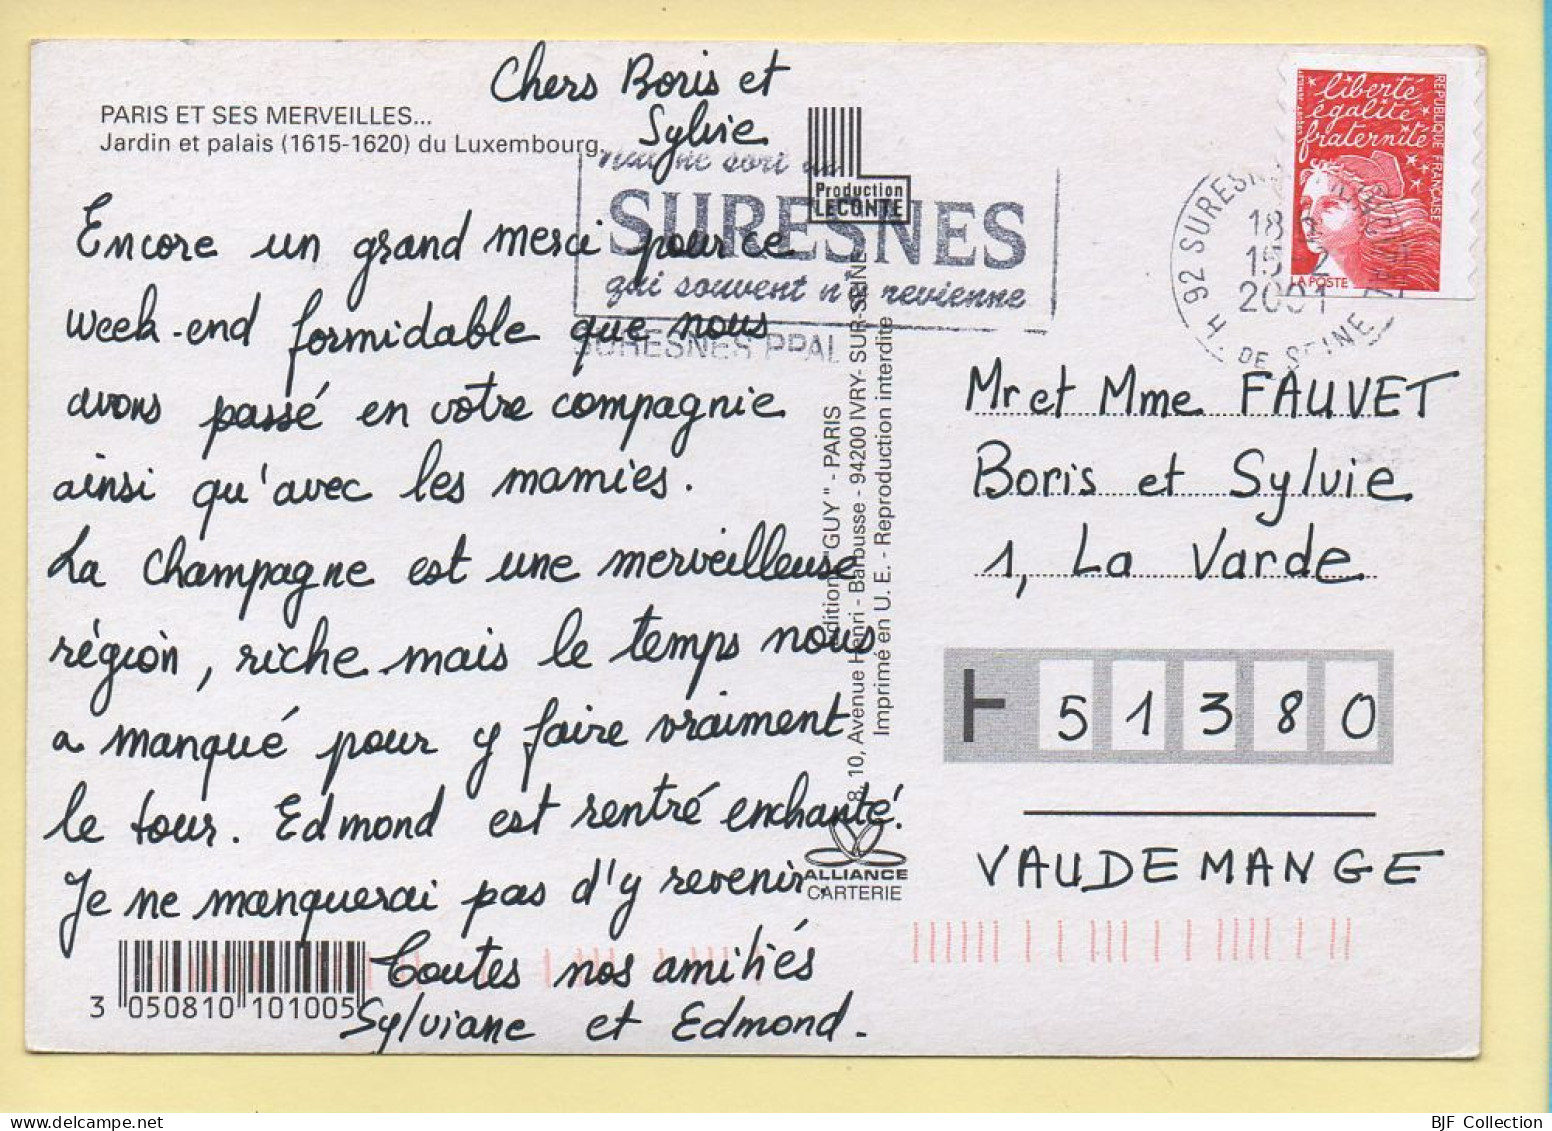 PARIS ET SES MERVEILLES...
Jardin et palais (1615-1620) du Luxembourg.
Chers Boris et
Sylvie
Encore un grand merci pour ce
week-end formidable que nous
avons passé en votre compagnie
ainsi qu'avec les mamies.
La Champagne est une merveilleuse
région, riche mais le temps nous
a manqué pour y faire vraiment
le tour. Edmond est rentré enchanté!
Je ne manquerai pas d'y revenir.
Toutes nos amitiés
Sylviane et Edmond.
3 050810 101005
Production
LECONTE
Nul ne sort de
SURESNES
qui souvent n'y revienne
SURESNES PPAL
Editions "GUY" - PARIS
8, 10, Avenue Henri - Barbusse - 94200 IVRY- SUR-SEINE
Imprimé en U. E. - Reproduction interdite
ALLIANCE
CARTERIE
92 SURESNES
18
15 2
2001
H. DE SEINE
liberté
égalité
fraternité
RÉPUBLIQUE FRANÇAISE
LA POSTE
Mr et Mme FAUVET
Boris et Sylvie
1, La Varde
51380
VAUDEMANGE
BJF Collection